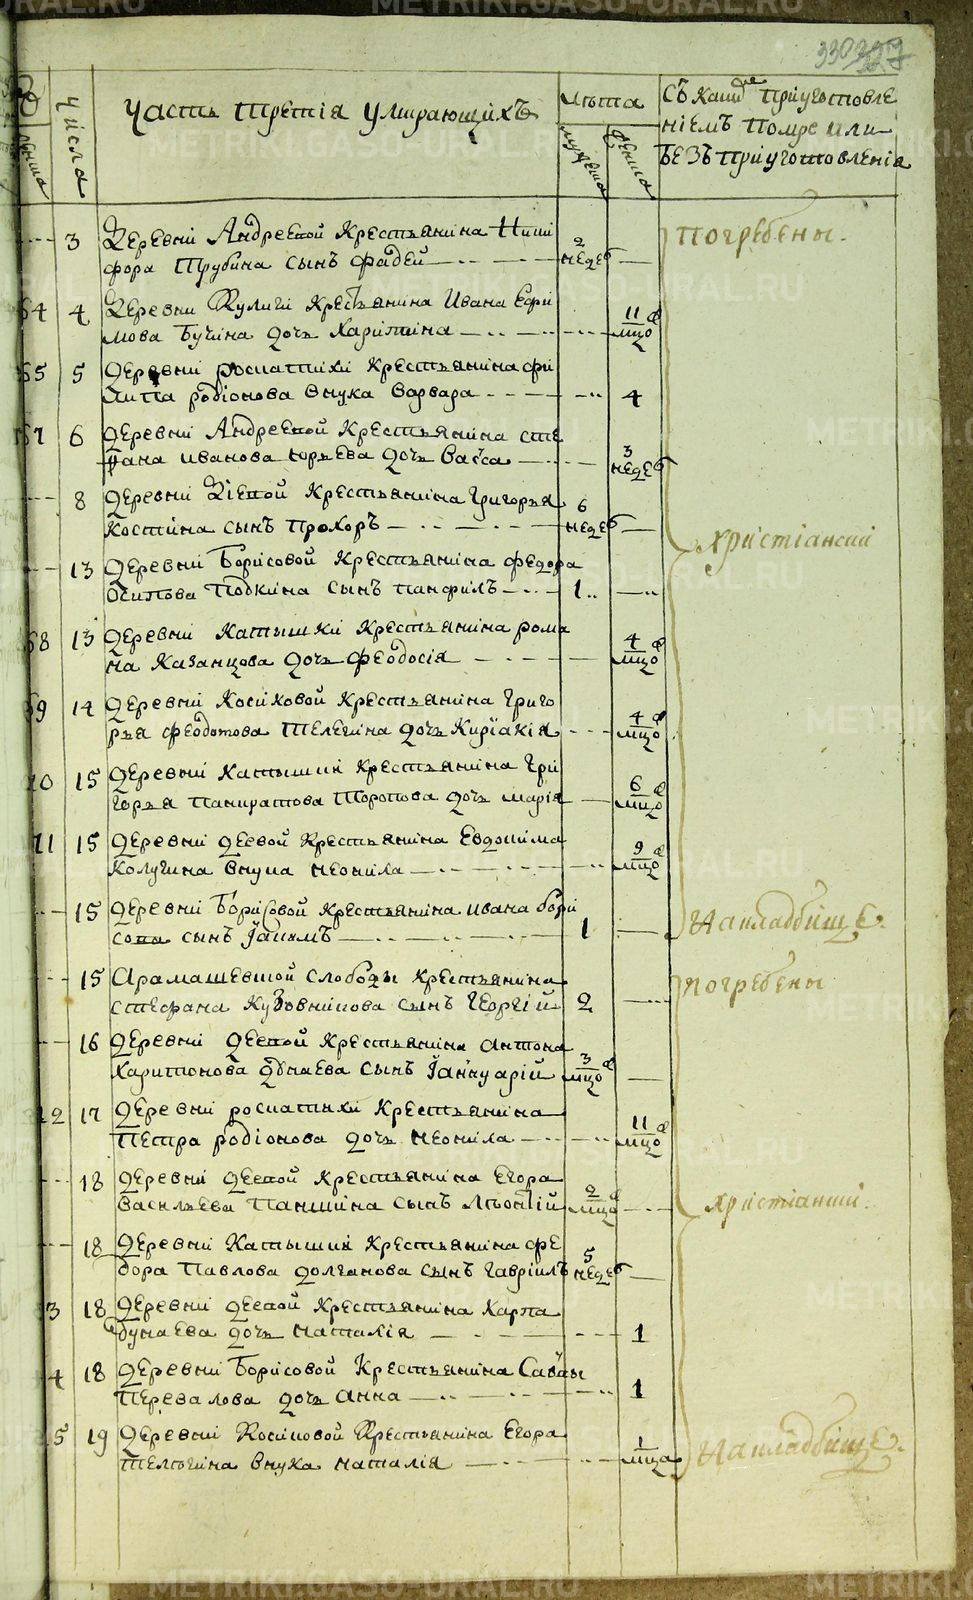 330
Числа
Часть третія умирающихъ
Лѣта
мужеска
женска
Съ каким приуготовле
ніемъ помре или
безъ приуготовленія
3 Деревни Андреевой крестьянина Ники
фора Трубина сынъ Фадей 2 недел
погребены
64 4 Деревни Кулиги крестьянина Ивана Ефи
мова Бучина дочь Харитина 11 мцо
65 5 Деревни Роскатихи крестьянина Фи
липа Родіонова внука Варвара 4
67 6 Деревни Андреевой крестьянина Сте
фана Иванова Юрьева дочь Васса 3 недел
8 Деревни Деевой крестьянина Григорья
Костина сынъ Прохоръ 6 недел
христіански
13 Деревни Борисовой крестьянина Федора
Осипова Подкина сынъ Панфилъ 1
68 13 Деревни Катышки крестьянина Рома
на Казанцова дочь Феодосія 4 мцо
69 14 Деревни Косиковой крестьянина Григо
рья Феодотова Телегина дочь Киріакія 4 мцо
70 15 Деревни Катышки крестьянина Гри
горья Панкратова Торопова дочь Марія 6 мцо
71 15 Деревни Деевой крестьянина Евдокима
Колугина внука Неонила 9 мцо
15 Деревни Борисовой крестьянина Ивана Бори
сова сынъ Іакимъ 1
на кладбище
15 Арамашевской слободы крестьянина
Стефана Кузовникова сынъ Георгій 2
погребены
16 Деревни Деевой крестьянина Антона
Харитонова Дунаева сынъ Іаннуарій 3 мцо
72 17 Деревни Роскатихи крестьянина
Петра Родіонова дочь Неонила 11 мцо
18 Деревни Деевой крестьянина Егора
Васильева Паншина сынъ Леонтій 2 мцо
христіански
18 Деревни Катышки крестьянина Фе
дора Павлова Долганова сынъ Гавріилъ 5 недел
73 18 Деревни Деевой крестьянина Карпа
Дунаева дочь Наталія 1
74 18 Деревни Борисовой крестьянина Саввы
Перевалова дочь Анна 1
75 19 Деревни Косиковой крестьянина Егора
Телегина внука Наталія 1 мца
на кладбище
METRIKI.GASO-URAL.RU